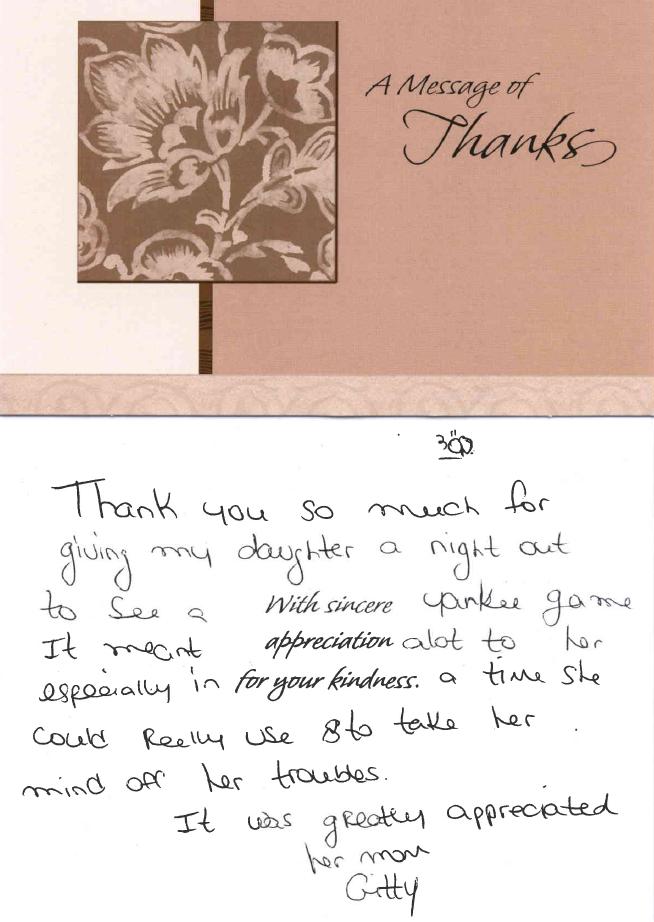 A Message of
Thanks
Thank you so much for
giving my daughter a night out
to see a With sincere yankee game
It meant appreciation alot to her
especially in for your kindness. a time she
could Really use to take her
mind off her troubles.
It was greatly appreciated
her mom
Gitty